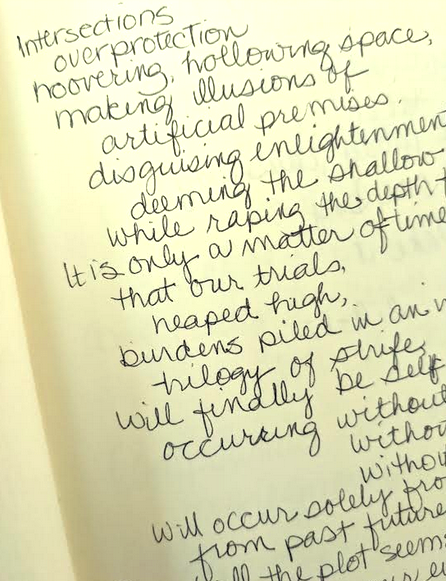 Intersections
overprotection
hoovering, hollowing space,
making illusions of
artificial premises.
disguising enlightenmen
deeming the shallow
while raping the depth
It is only a matter of time
that our trials,
heaped high,
burdens piled in an
trilogy of strife,
will finally be self
occurring without
without
withou
will occur solely fro
from past future
the plot seem